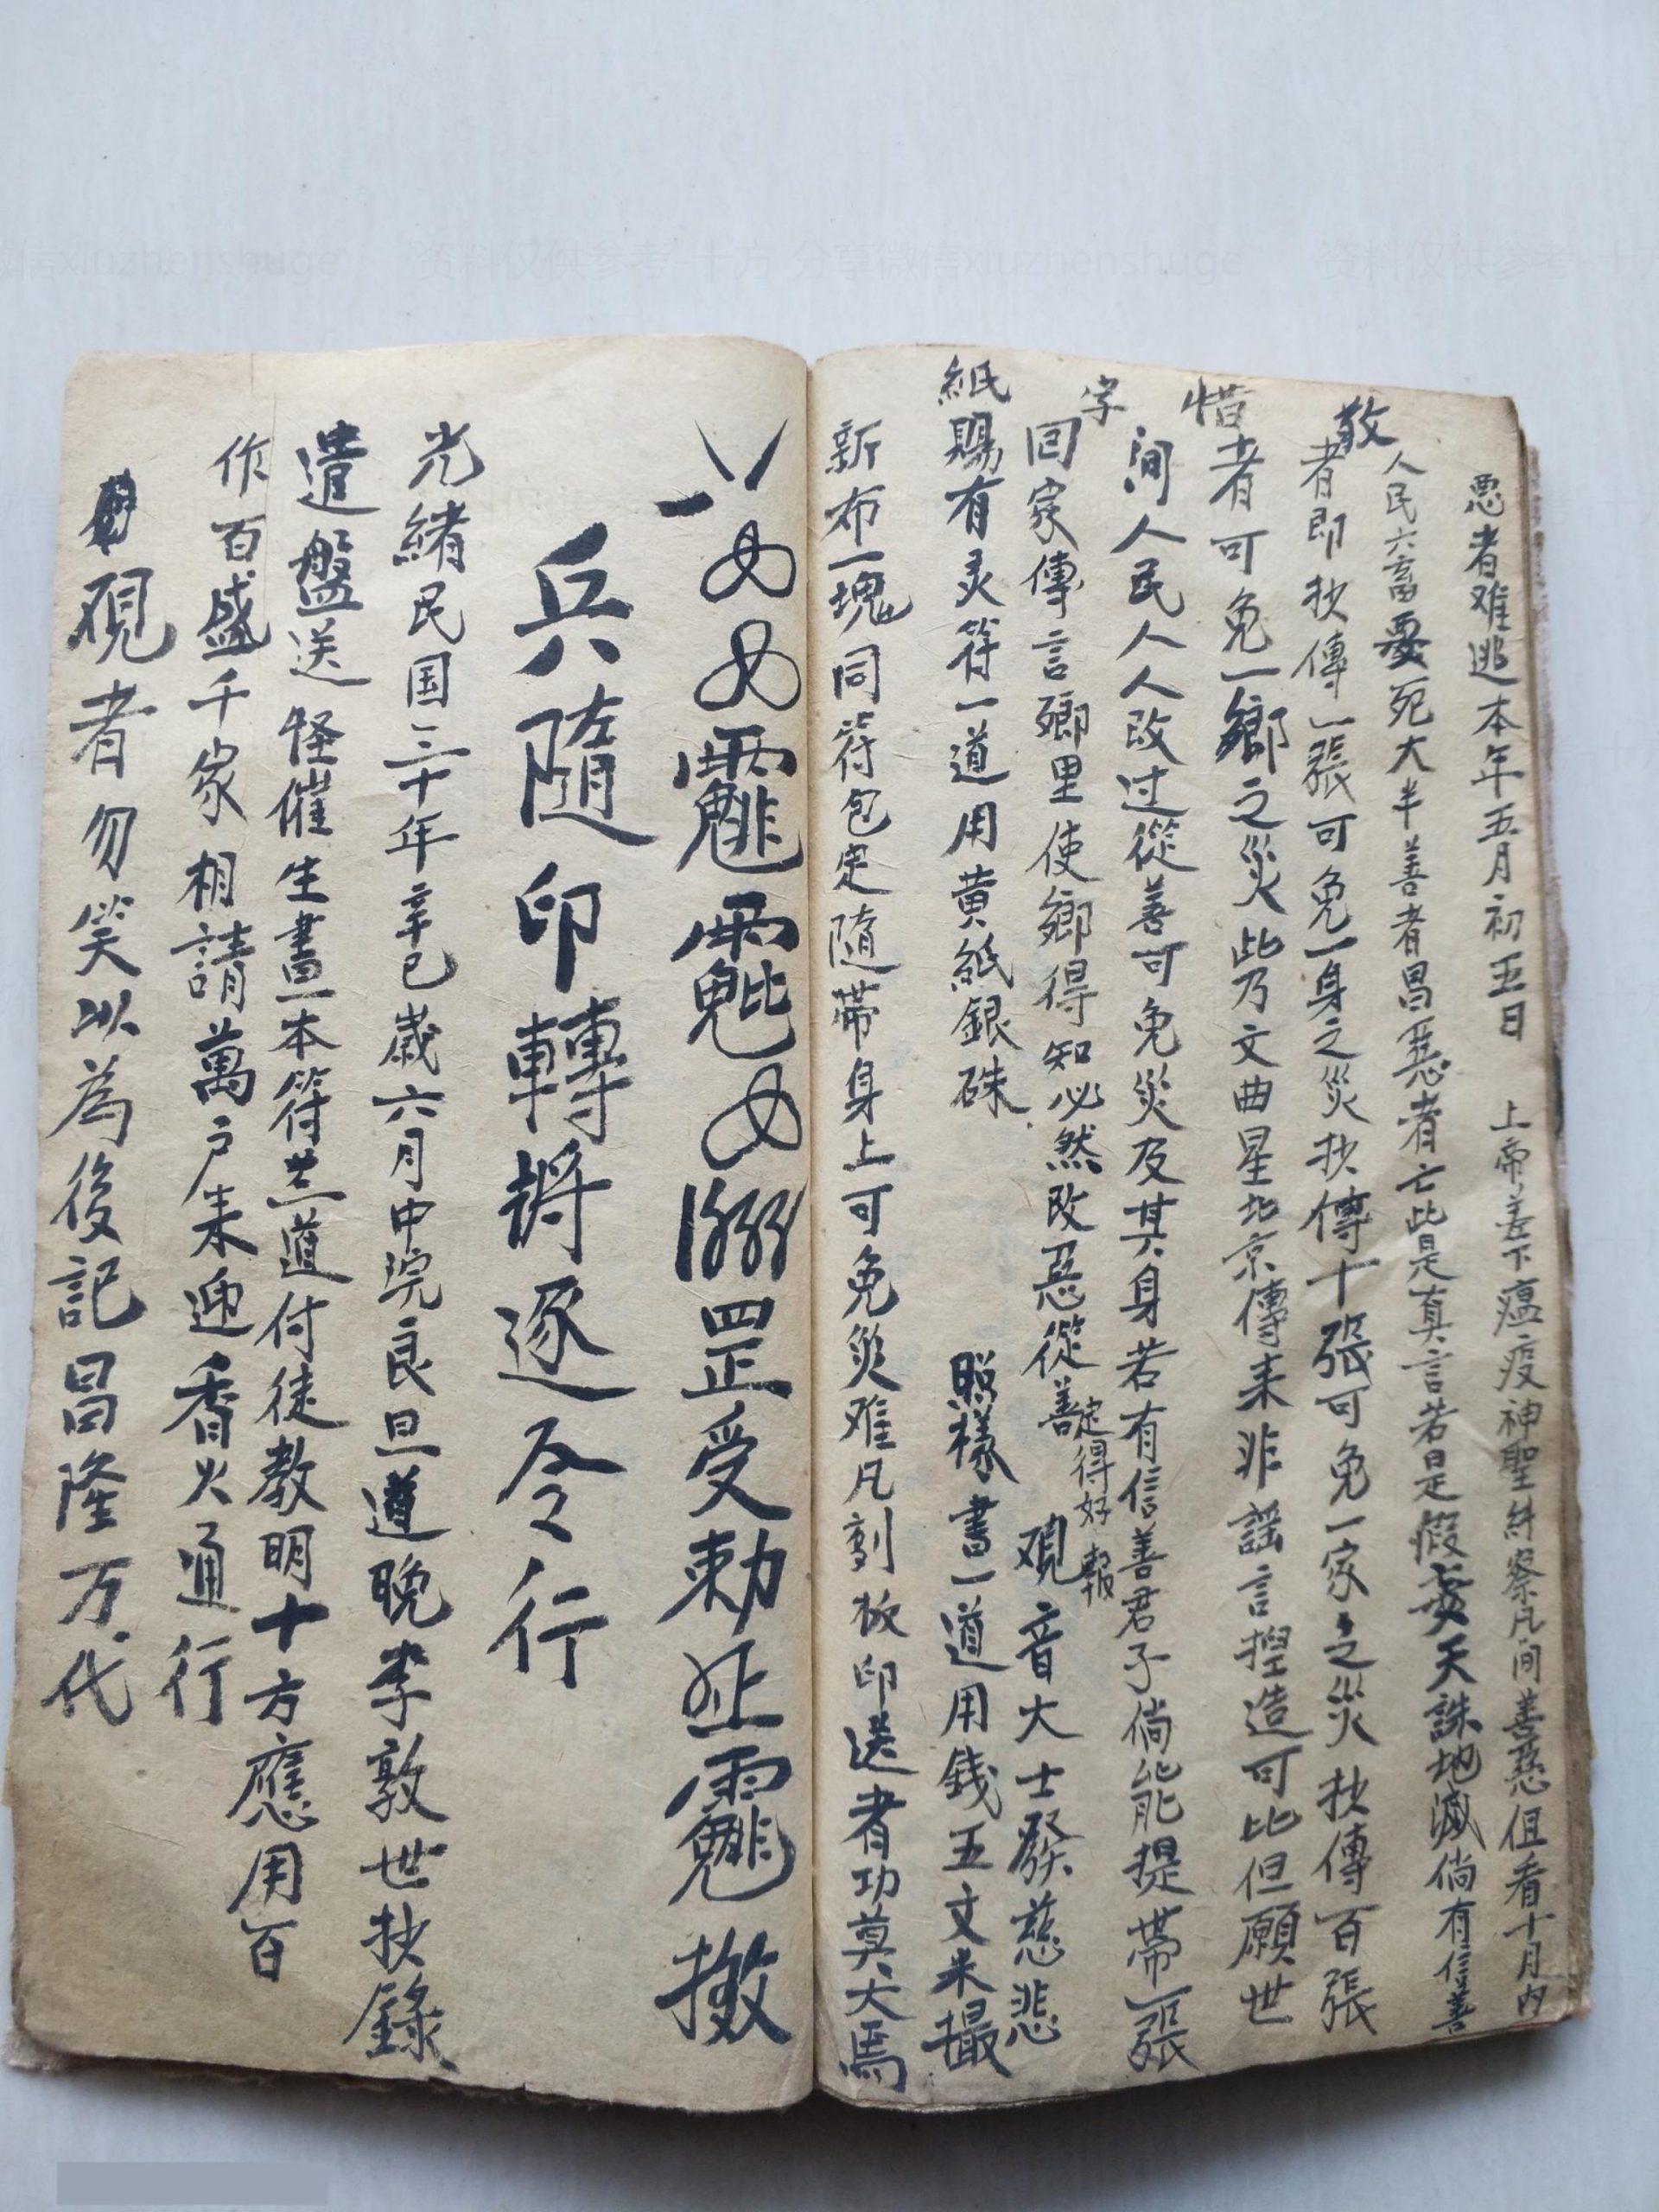 恶者难逃本年五月初五日 上帝差下瘟疫神聖糾察凡间善惡但看十月内
人民六畜要死大半善者昌惡者亡此是真言若是假妄天誅地滅倘有信善
敬
者即抄傳一張可免一身之災抄傳十張可免一家之災抄傳百張
惜
者可免一鄉之災此乃文曲星北京傳来非謡言揑造可比但願世
间人民人人改过從善可免災及其身若有信善君子倘能提帶一張
字
回家傳言鄉里使鄉得知必然改惡從善定得好報 觀音大士發慈悲
紙
賜有灵符一道用黄紙銀硃 照樣書一道用錢五文米撮
新布一塊同符包定隨帶身上可免災难凡刻板印送者功莫大焉
罡受勅
兵隨印轉將逐令行
光緒民国三十年辛巳歲六月中浣良旦道晚李敦世抄錄
遣盤送怪催生晝本符兰道付徒教明十方應用百
作百盛千家相請萬户来迎香火通行
覌者勿笑以為後記昌隆万代
微信xiuzhenshuge 资料仅供参考 十方 分享微信xiuzhenshuge 资料仅供参考 十方